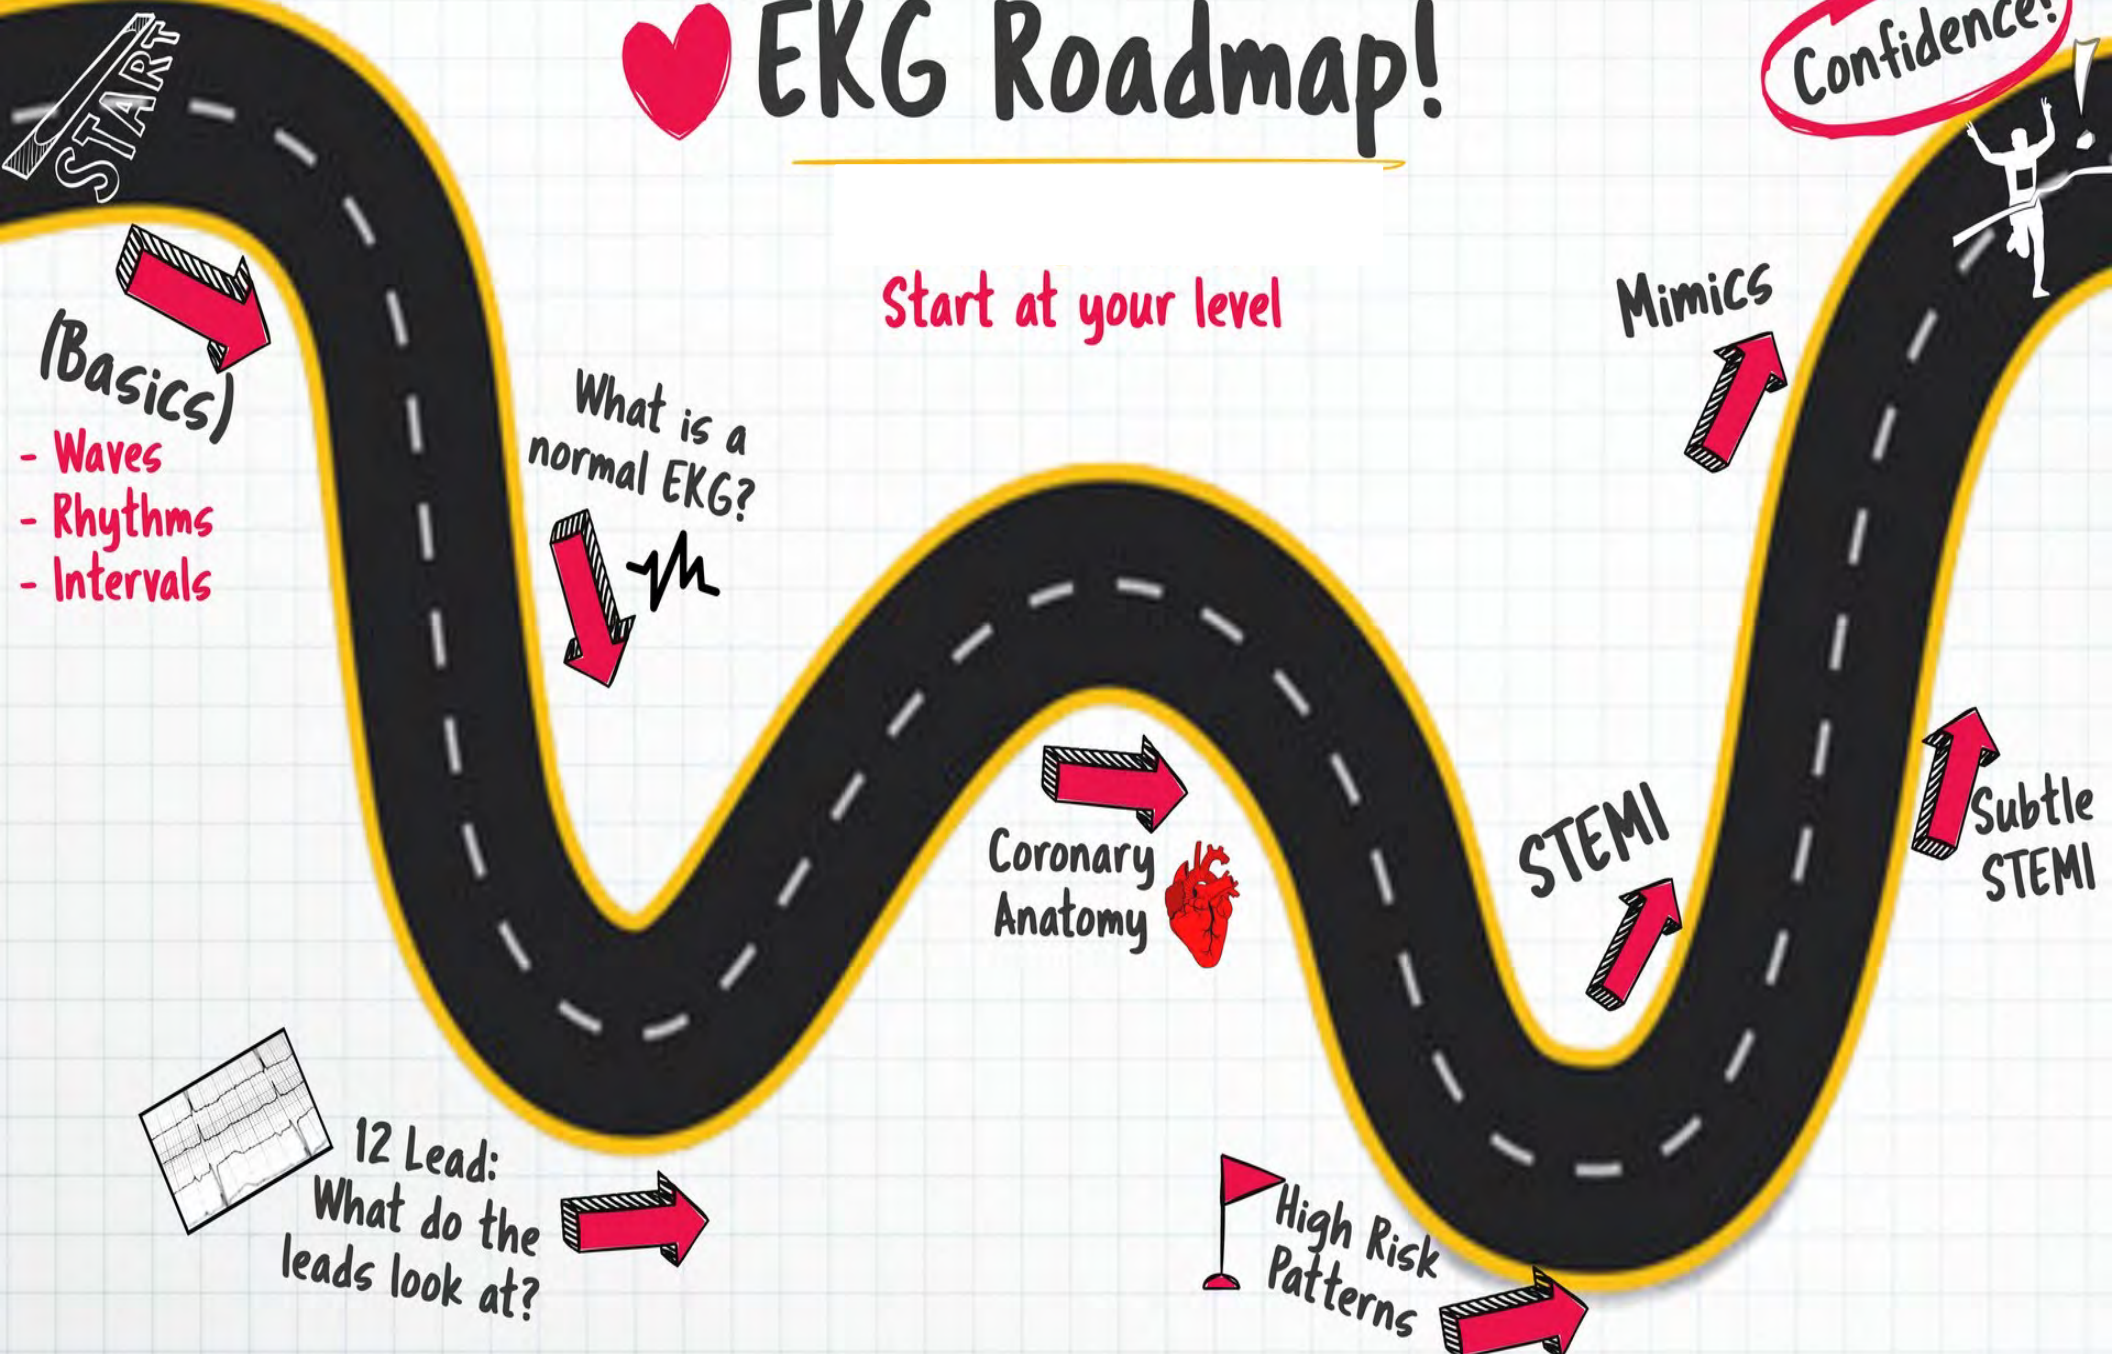 START
EKG Roadmap!
Confidence!
Start at your level
(Basics)
- Waves
- Rhythms
- Intervals
What is a
normal EKG?
12 Lead:
What do the
leads look at?
Coronary
Anatomy
High Risk
Patterns
STEMI
Subtle
STEMI
Mimics